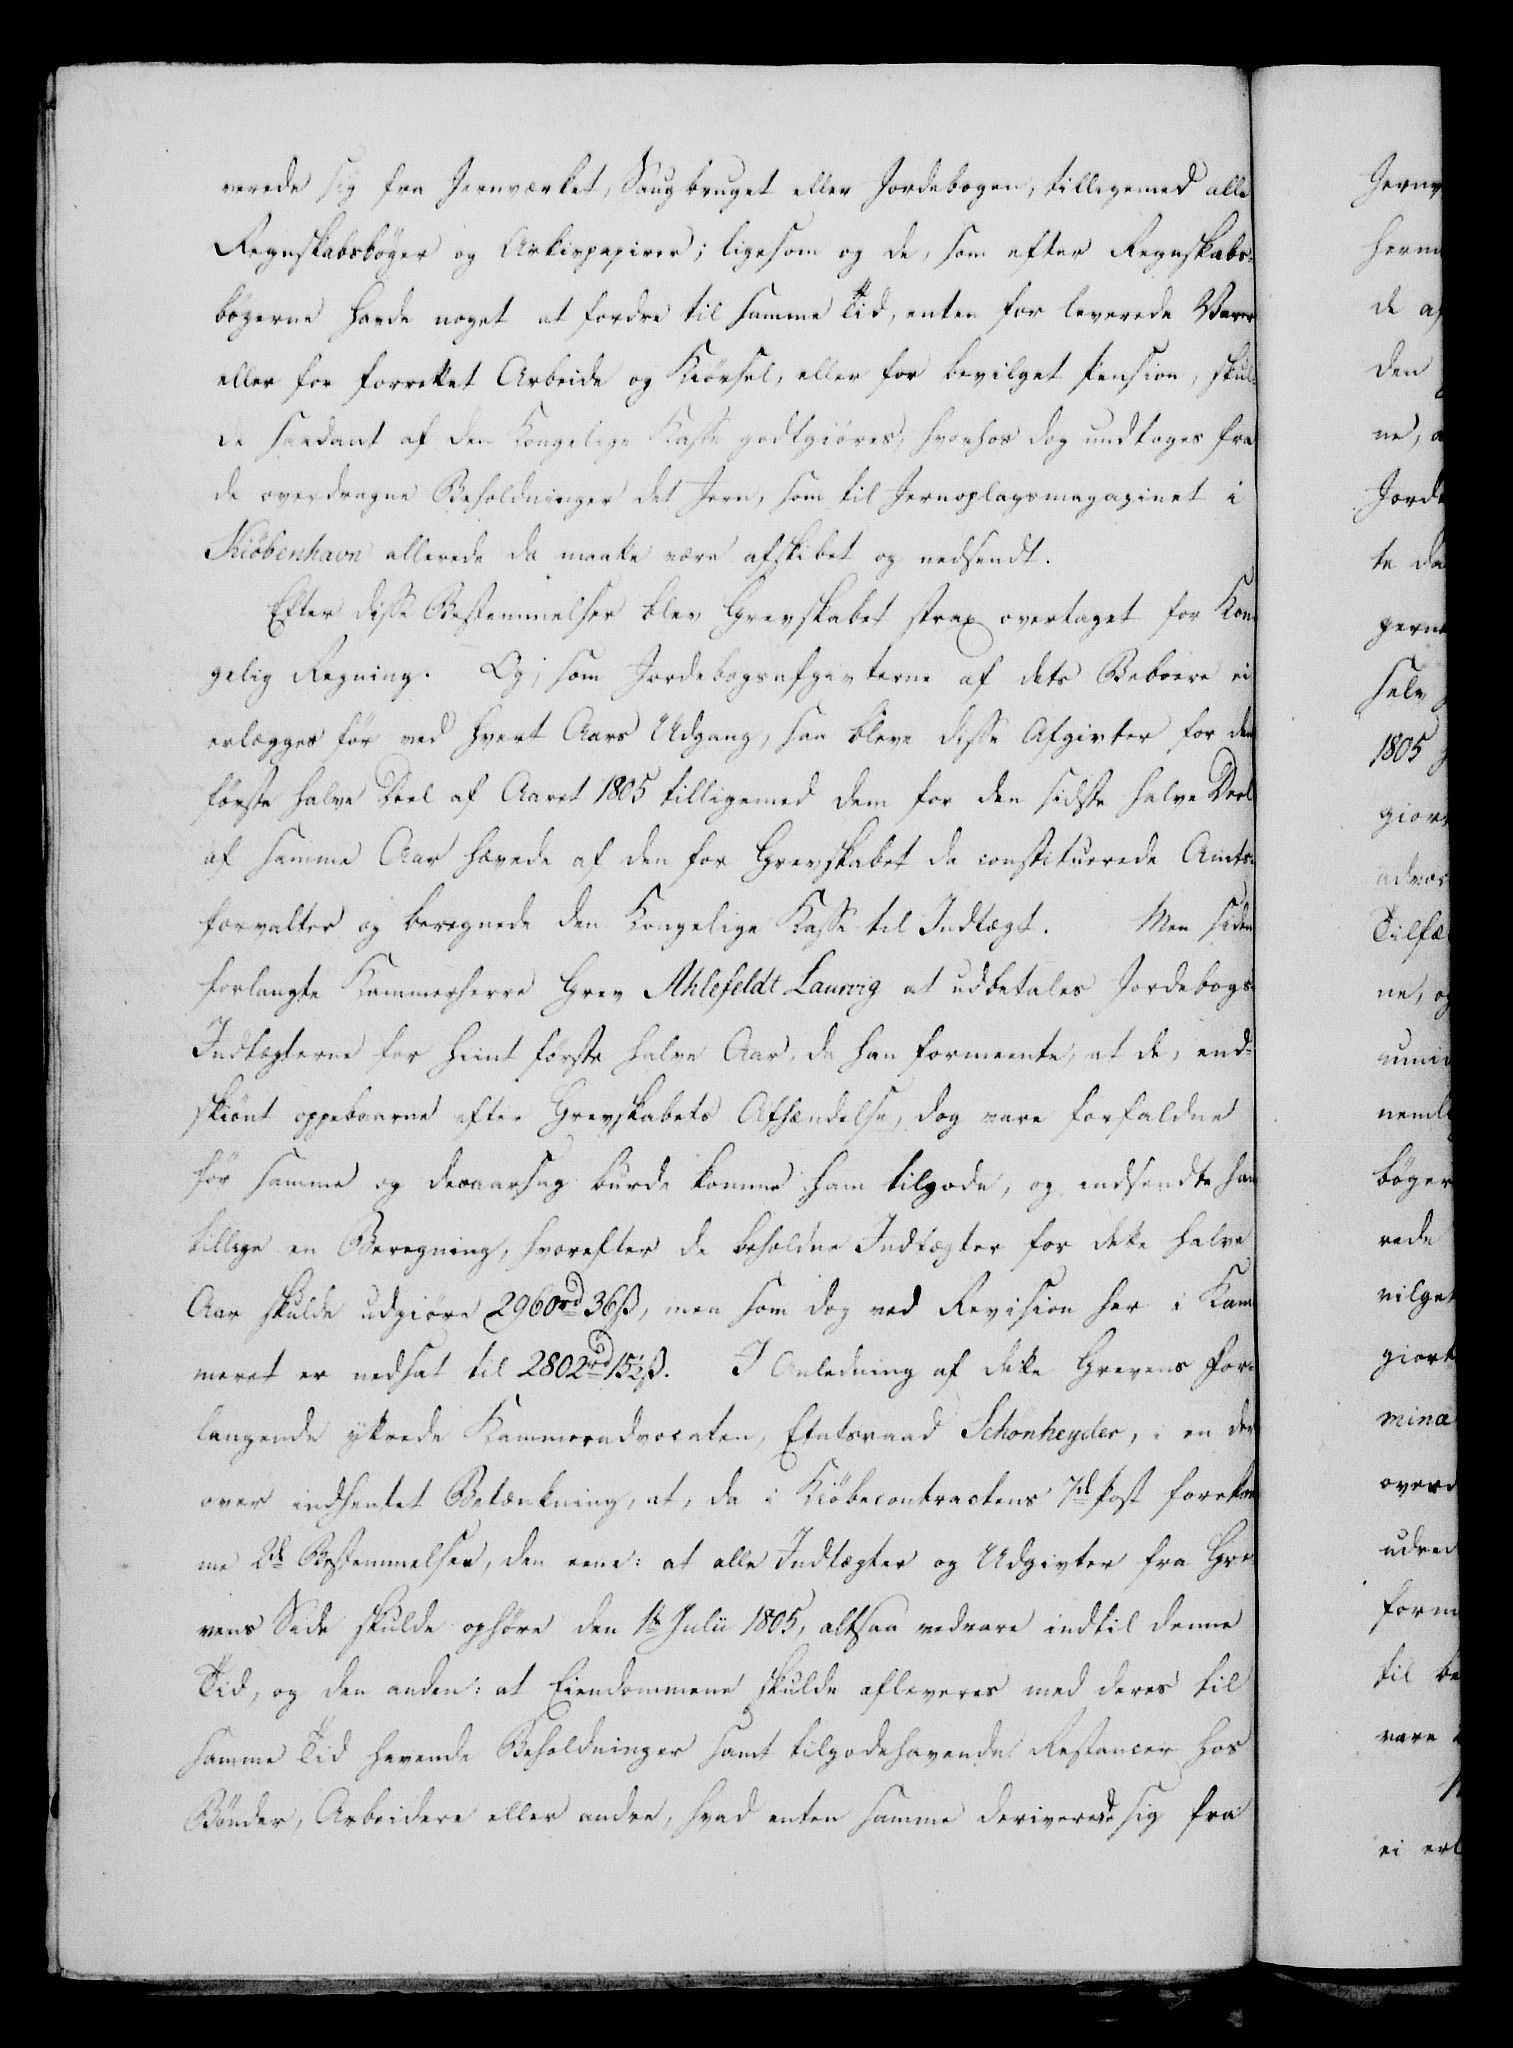 verede sig fra Jernværket, Saugbruget eller Jordebogen, tilligemed alle
Regnskabsbøger og Arkivpapirer; ligesom og de, som efter Regnskabs-
bøgerne havde noget at fordre til samme Tid, enten for leverede Varer
eller for forrettet Arbeide og Kiørsel, eller for bevilget Pension, skul-
de saadant af den Kongelige Kasse godtgiøres, hvorhos dog undtoges fra
de overdragne Beholdninger det Jern, som til Jernoplagsmagazinet i
Kiøbenhavn allerede da maatte være afskibet og nedsendt.
Efter disse Bestemmelser blev Grevskabet strax overtaget for Kon-
gelig Regning. Og, som Jordebogsafgivterne af dets Beboere ei
erlægges før ved hvert Aars Udgang, saa bleve disse Afgivter for den
første halve Deel af Aaret 1805 tilligemed dem for den sidste halve Deel
af samme Aar hævede af den for Grevskabet da constituerede Amts-
forvalter og beregnede den Kongelige Kasse til Indtægt. Men siden
forlangte Kammerherre Grev Ahlefeldt Laurvig at udbetales Jordebogs-
Indtægterne for hiint første halve Aar, da han formeente, at de, end-
skiønt oppebaarne efter Grevskabets Afhændelse, dog vare forfaldne
før samme og desaarsag burde komme ham tilgode, og indsendte han
tillige en Beregning, hvorefter de beholdne Indtægter for dette halve
Aar skulde udgiøre 2960rd 36ß, men som dog ved Revision her i Kam-
meret er nedsat til 2802rd 15½ß. I Anledning af dette Grevens For-
langende yttrede Kammeradvocaten, Etatsraad Schønheyder, i en der-
over indhentet Betænkning, at, da i Kiøbecontractens 7de Post forekom-
me 2de Bestemmelser, den eene: at alle Indtægter og Udgivter fra Gre-
vens Side skulde ophøre den 1te Julii 1805, altsaa vedvare indtil denne
Tid, og den anden: at Eiendommene skulde afleveres med deres til
samme Tid havende Beholdninger samt tilgodehavende Restancer hos
Bønder, Arbeidere eller andre, hvad enten samme deriverede sig fra
de
den
ne,
te
selv
1805
ne, og
bøger
rede
vilget
giort
til
vare
ei